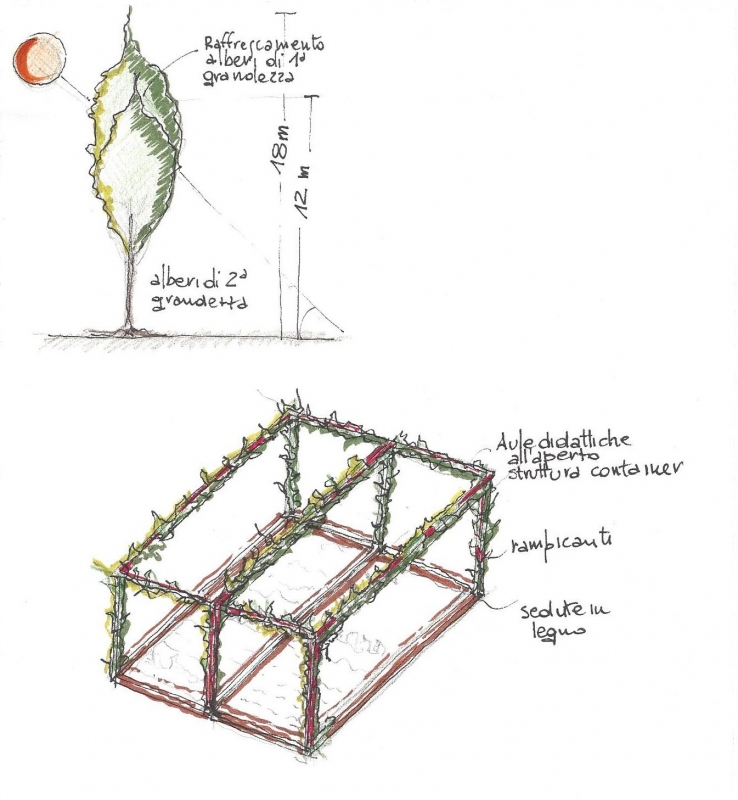 Raffrescamento
alberi di 1ª
grandezza
18m
12 m
alberi di 2ª
grandezza
Aule didattiche
all'aperto
struttura container
rampicanti
sedute in
legno